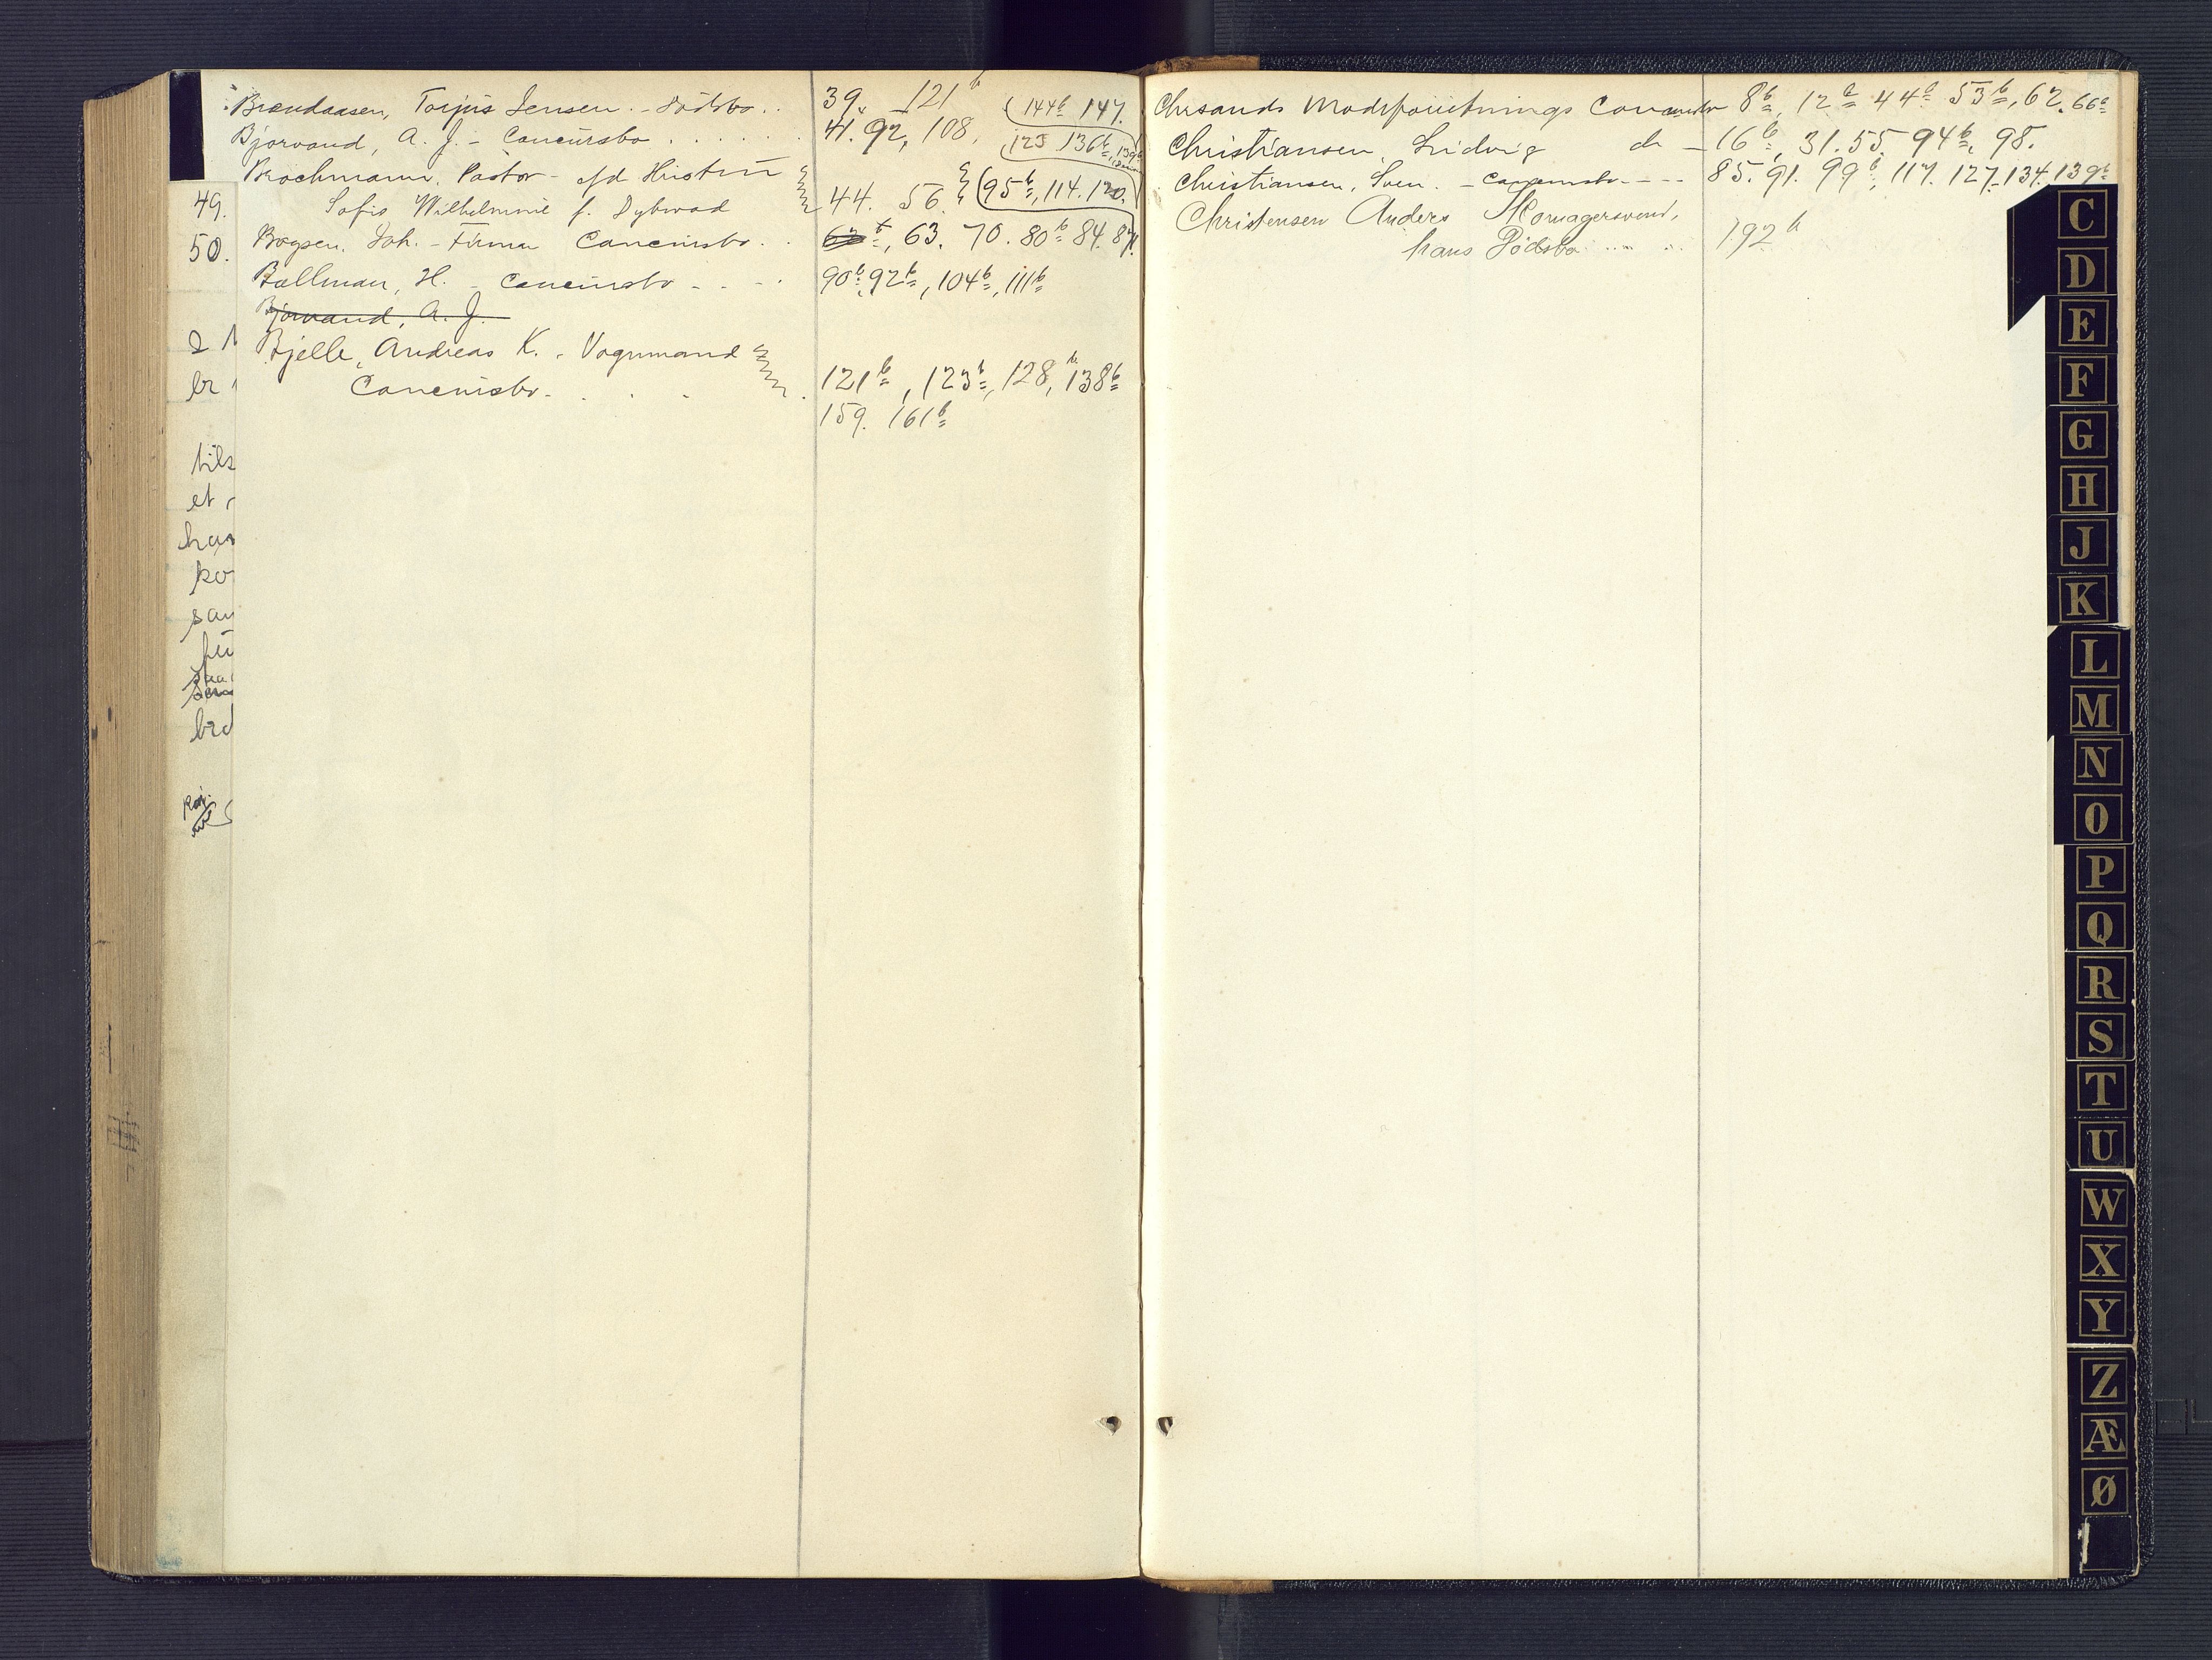 Brændaasen, Torjus Jensen - Dödsbo . . 39, 121 b
Bjorvand, A. J. - Concursbo . . . . . 41. 92, 108, (123 136 b
(144 b 147.
Brochmann, Pastor - afd Hustru
Sofie Wilhelmine f. Dybwad 44. 56. (95 b, 114. 120.
Bogsen, Joh. - Firma Concursbo . . 63. 70. 80 b 84. 87.
Ballman, H. - Concursbo - . - . 90 b, 92 b, 104 b, 111 b
Bjorvand, A. J.
Bjelle, Andreas K. - Vognmand
Concursbo - . . . 121 b, 123 b, 128, 138 b
159. 161 b
49.
50.
br
tils
et
han
ko
sam
brd
Chrsands Modeforretnings Concursbo 8 b, 12 b 44 b 53 b, 62. 66 b
Christiansen, Ludvig do - 16 b, 31. 55. 94 b, 98.
Christiansen, Sven. - Concursbo - - - 85. 91. 99 b, 117. 127. 134. 139 b
Christensen Anders Skomagersvend,
hans Dödsbo . . . . 192 b
C
D
E
F
G
H
J
K
L
M
N
O
P
Q
R
S
T
U
W
X
Y
Z
Æ
Ø